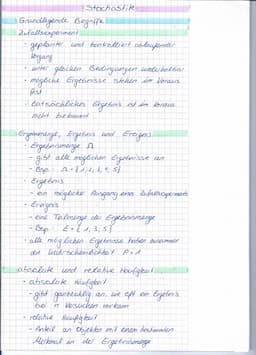 Stochastik
Grundlegende Begriffe
Zufallsexperiment
- geplanter und kontrolliert ablaufender
Vorgang
- unter gleichen Bedingungen wiederholbar
- mögliche Ergebnisse stehen im Voraus
fest
- tatsächliches Ergebnis ist im Voraus
nicht bekannt
Ergebnismenge, Ergebnis und Ereignis
• Ergebnismenge Ω
- gibt alle möglichen Ergebnisse an
- Bsp.: Ω = {1,2,3,4,5}
• Ergebnis
- ein möglicher Ausgang eines Zufallsexperiments
• Ereignis
- eine Teilmenge der Ergebnismenge
- Bsp.: E = {1,3,5}
• alle möglichen Ergebnisse haben zusammen
die Wahrscheinlichkeit P=1
absolute und relative Häufigkeit
• absolute Häufigkeit
- gibt ganzzahlig an, wie oft ein Ergebnis
bei n Versuchen vorkam
• relative Häufigkeit
- Anteil an Objekten mit einem bestimmten
Merkmal in der Ergebnismenge